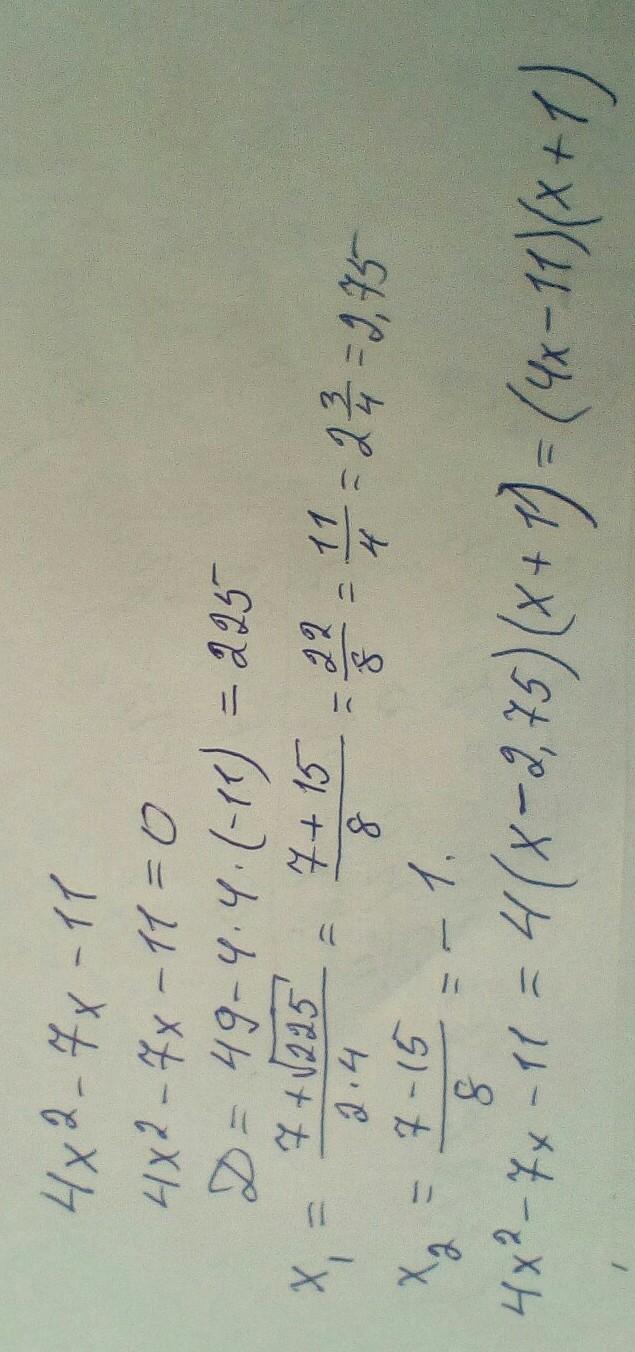 4x² - 7x - 11
4x² - 7x - 11 = 0
D = 49 - 4 · 4 · (-11) = 225
x₁ = (7 + √225)/(2 · 4) = (7 + 15)/8 = 22/8 = 11/4 = 2 3/4 = 2,75
x₂ = (7 - 15)/8 = - 1.
4x² - 7x - 11 = 4(x - 2,75)(x + 1) = (4x - 11)(x + 1)